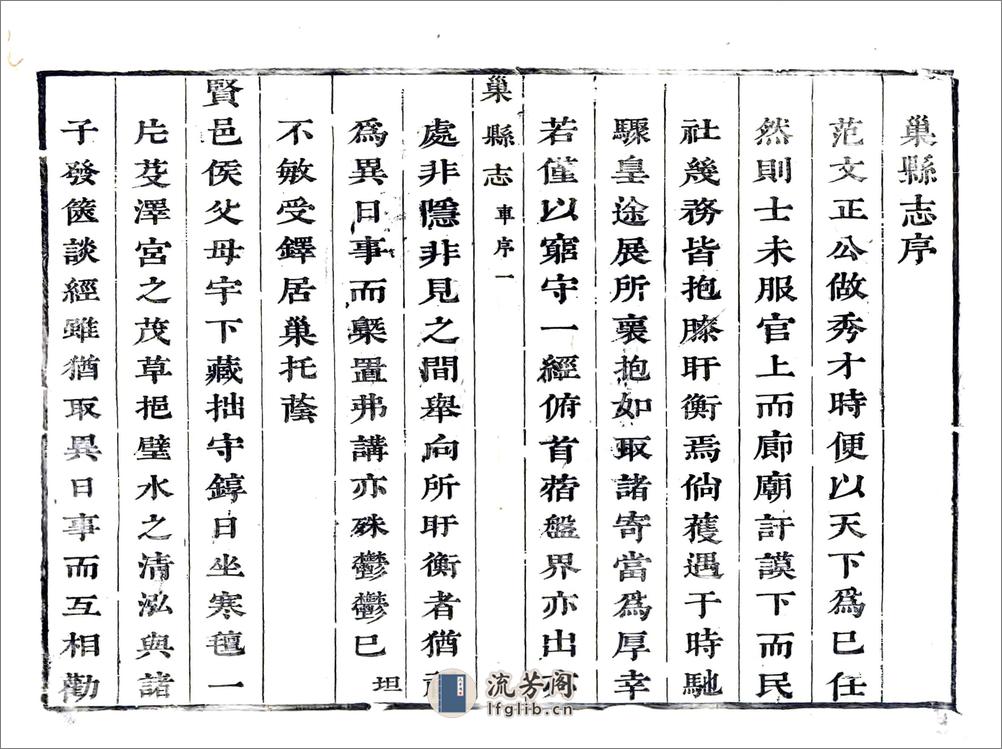 巢縣志序
范文正公做秀才時便以天下爲已任
然則士未服官上而廊廟訏謨下而民
社幾務皆抱膝盱衡焉倘獲遇于時馳
驟皇途展所褱抱如取諸寄當爲厚幸
若僅以窮守一經俯首蓿盤界亦出
巢縣志 車序一
處非隱非見之間舉向所盱衡者猶
爲異日事而槩置弗講亦殊鬱鬱已 坦
不敏受鐸居巢托蔭
賢邑侯父母宇下藏拙守錞日坐寒氊一
片芟澤宮之茂草挹璧水之清泓與諸
子發篋談經雖猶取異日事而互相勸
流芳阁
lfglib.cn